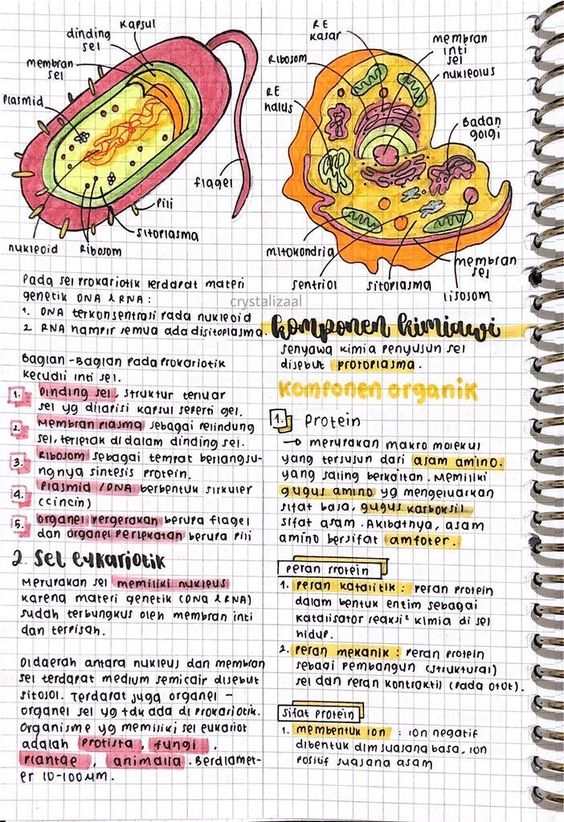 kapsul
dinding
sel
membran
sel
Plasmid
flagel
Pili
sitoplasma
Ribosom
nukleoid
RE
kasar
membran
inti
sel
nukleolus
Ribosom
RE
halus
Badan
golgi
mitokondria
sentriol
sitoplasma
membran
sel
lisosom
Pada sel Prokariotik terdapat materi
genetik DNA & RNA :
1. DNA terkonsentrasi pada nukleoid
2. RNA hampir semua ada disitoplasma.
crystalizaal
Bagian-Bagian Pada Prokariotik
kecuali inti sel.
1. Dinding sel, struktur terluar
sel yg dilapisi kapsul seperti gel.
2. Membran Plasma sebagai pelindung
sel, terletak di dalam dinding sel.
3. Ribosom sebagai tempat berlangsu-
ngnya sintesis protein.
4. Plasmid / DNA berbentuk sirkuler
(cincin)
5. Organel Pergerakan berupa flagel
dan organel Perlekatan berupa Pili
2. Sel eukariotik
Merupakan sel memiliki nukleus
karena materi genetik (DNA & RNA)
sudah terbungkus oleh membran inti
dan terpisah.
Didaerah antara nukleus dan membran
sel terdapat medium semicair disebut
sitosol. Terdapat juga organel -
organel sel yg tdk ada di prokariotik.
Organisme yg memiliki sel eukariot
adalah Protista, fungi,
Plantae, animalia. Berdiamet-
er 10-100µm.
komponen kimiawi
Senyawa kimia penyusun sel
disebut protoplasma.
Komponen organik
1. Protein
→ merupakan makro molekul
yang tersusun dari asam amino.
yang saling berkaitan. Memiliki
gugus amino yg mengeluarkan
sifat basa, gugus karboksil
sifat asam. Akibatnya, asam
amino bersifat amfoter.
Peran Protein
1. Peran katalitik : Peran protein
dalam bentuk enzim sebagai
katalisator reaksi² kimia di sel
hidup.
2. Peran mekanik : Peran protein
sebagai pembangun (struktural)
sel dan peran kontraktil (pada otot).
Sifat Protein
1. Membentuk ion : ion negatif
dibentuk dlm suasana basa, ion
positif suasana asam